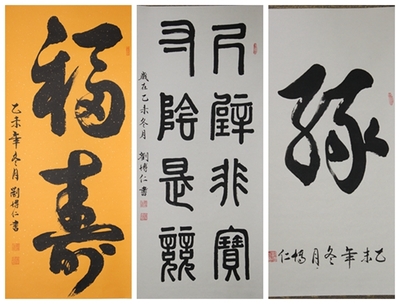 福壽
乙未年冬月 劉博仁書
尺璧非寶
寸陰是競
歲在乙未冬月 劉博仁書
緣
乙未年冬月博仁